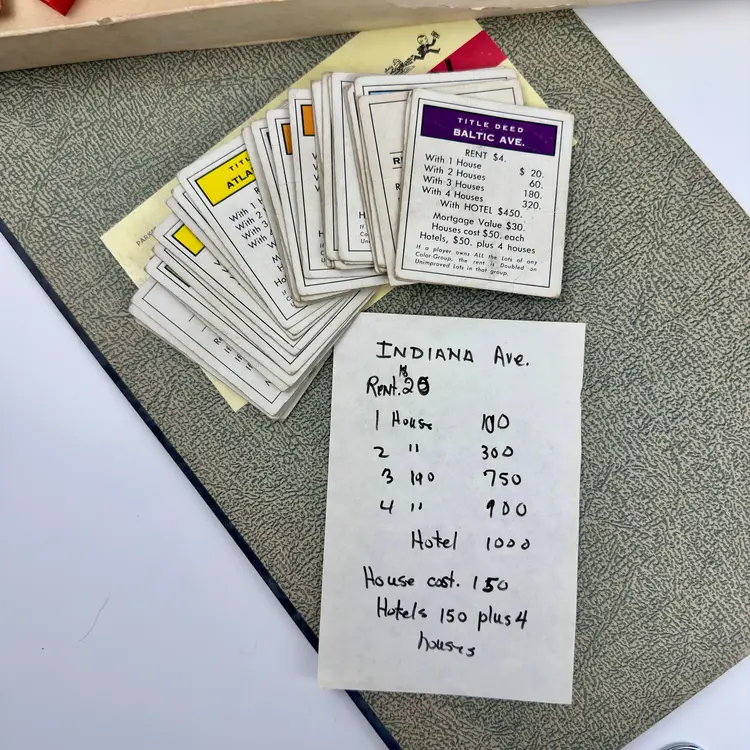 PARK
TITL
ATLA
RE
With 1
With 2
With
With
Ho
TITLE DEED
BALTIC AVE.
RENT $4.
With 1 House $ 20.
With 2 Houses 60.
With 3 Houses 180.
With 4 Houses 320.
With HOTEL $450.
Mortgage Value $30.
Houses cost $50. each
Hotels, $50. plus 4 houses
If a player owns ALL the Lots of any
Color-Group, the rent is Doubled on
Unimproved Lots in that group.
INDIANA Ave.
Rent. $20
1 House 100
2 " 300
3 190 750
4 " 900
Hotel 1000
House cost. 150
Hotels 150 plus 4
houses